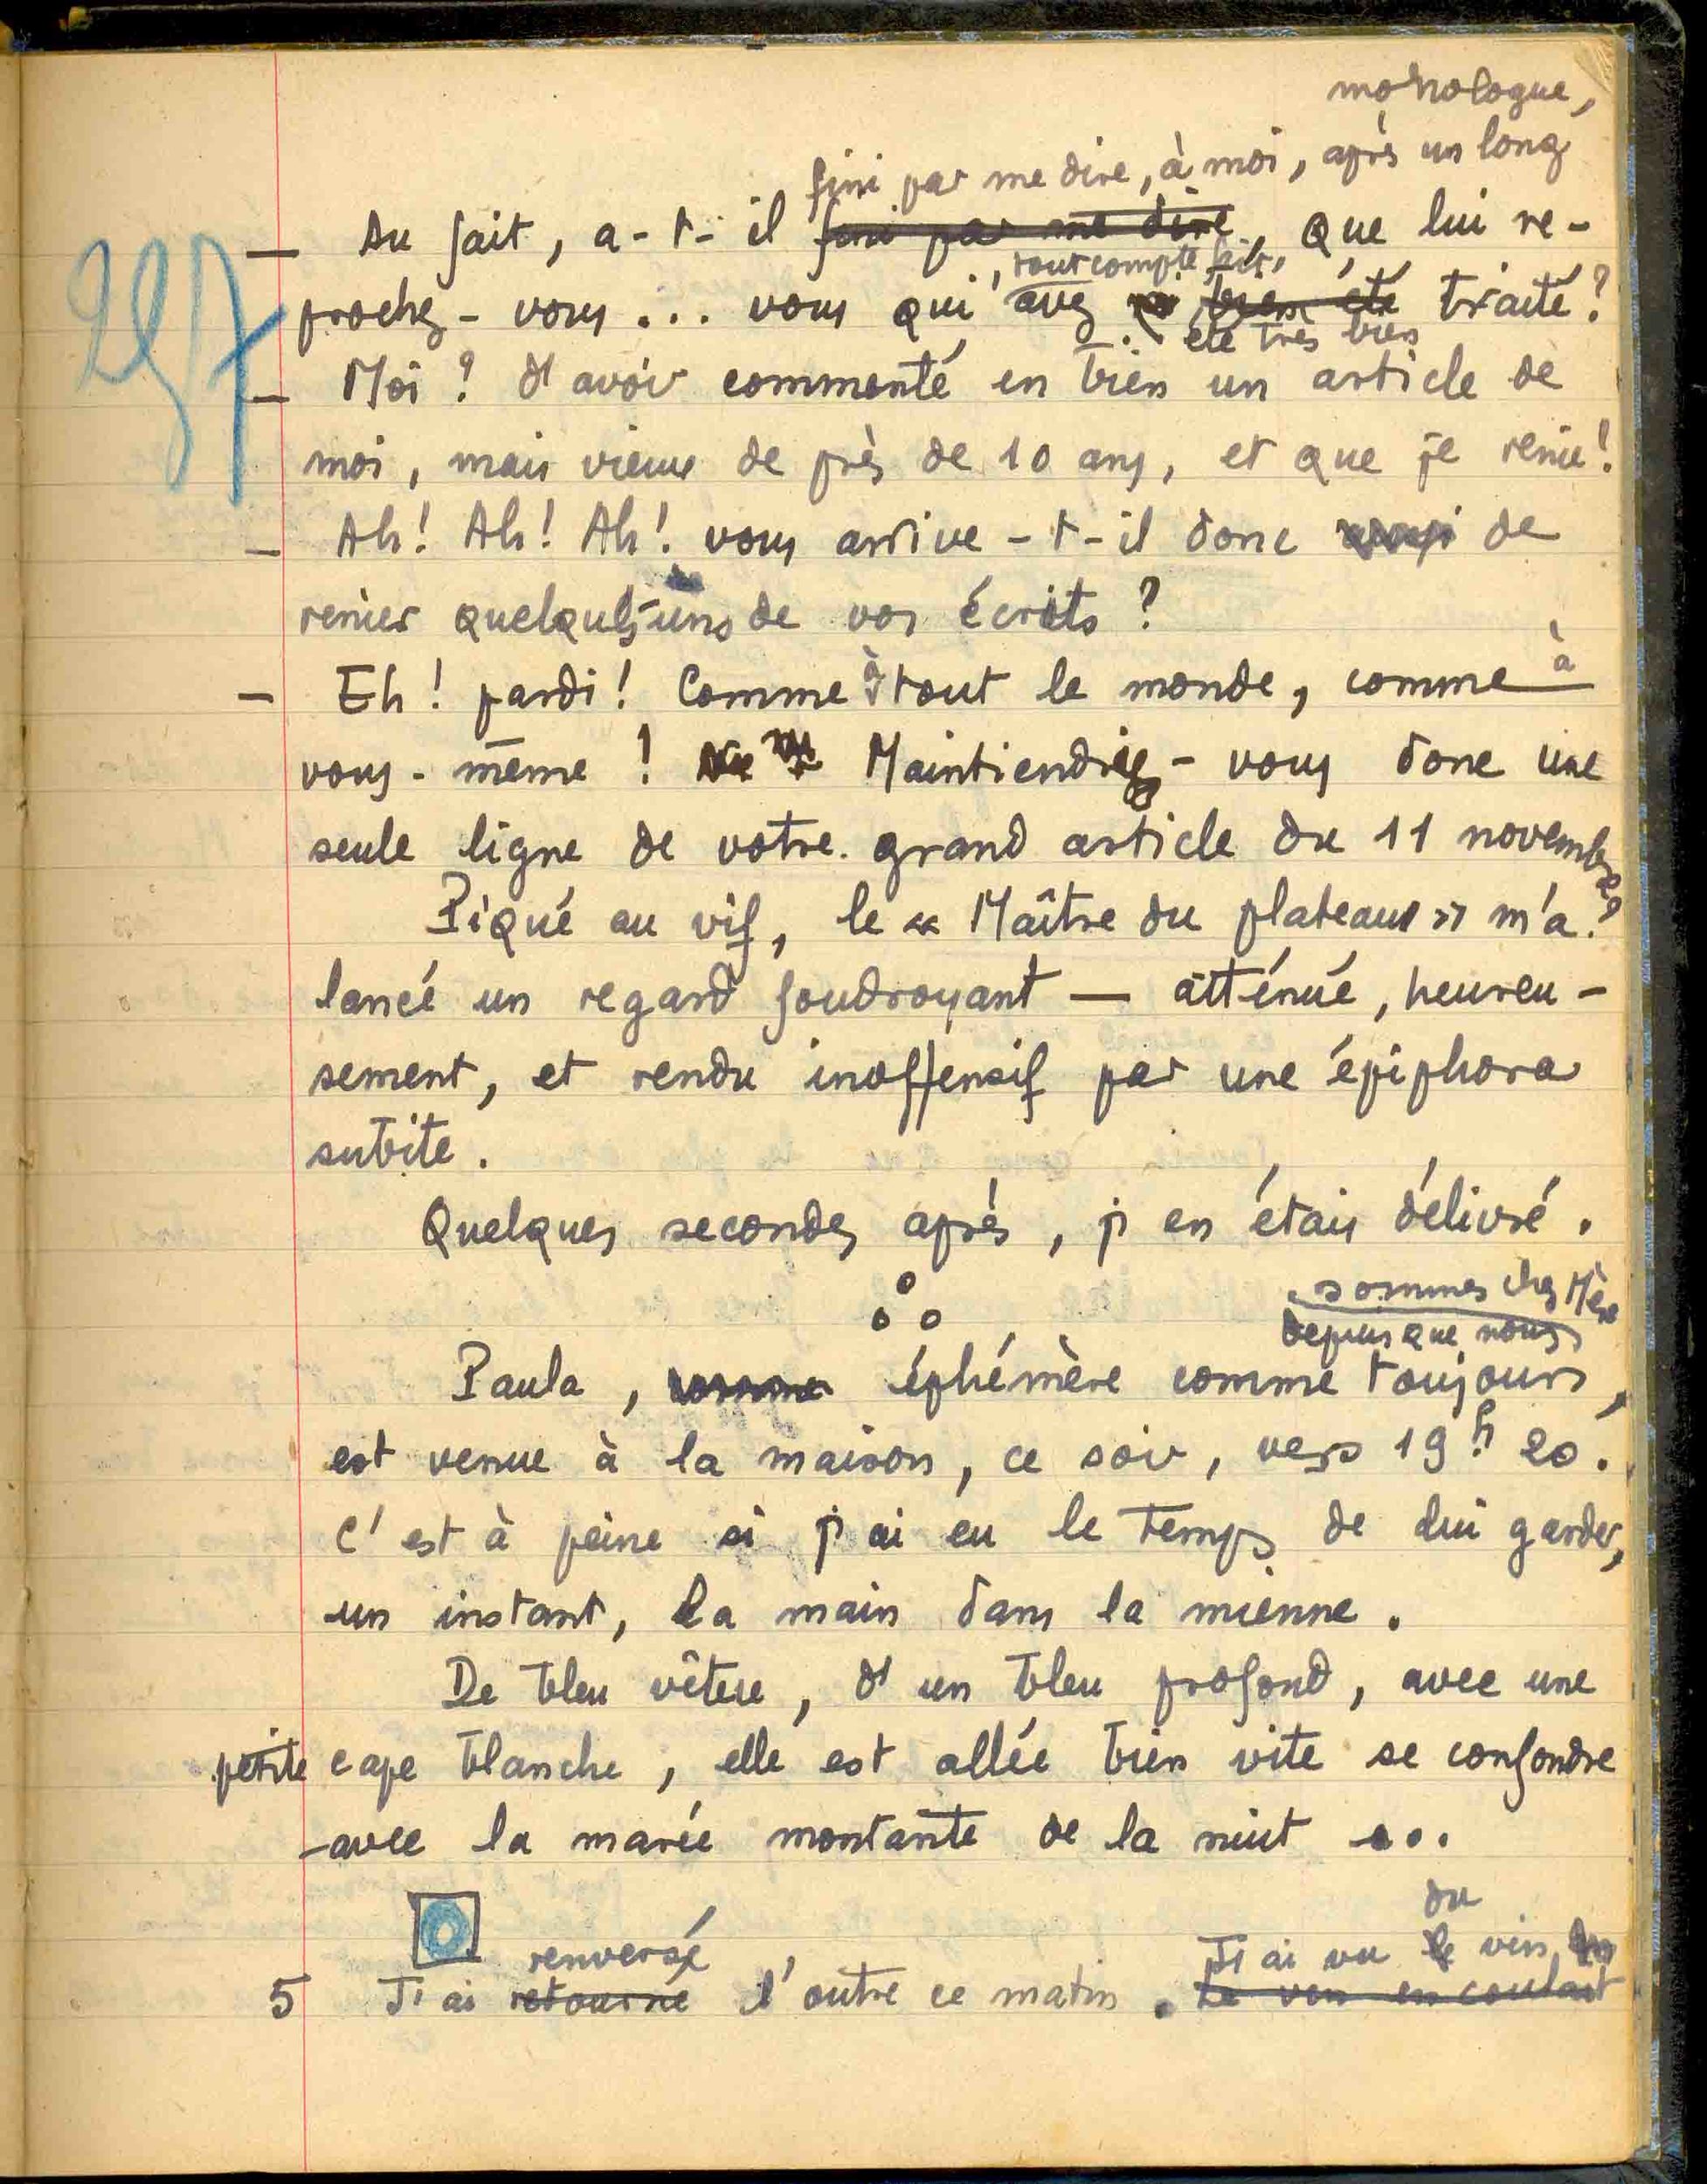 monologue,
fini par me dire, à moi, après un long
— Au fait, a-t-il fini par me dire, que lui re-
, tout compte fait,
prochez-vous... vous qui avez bien été traité?
été très bien
297
— Moi? d'avoir commenté en bien un article de
moi, mais vieux de près de 10 ans, et que je renie!
— Ah! Ah! Ah! vous arrive-t-il donc de
renier quelques-uns de vos écrits?
— Eh! pardi! Comme à tout le monde, comme à
vous-même! Maintiendriez-vous donc une
seule ligne de votre grand article du 11 novembre?
Piqué au vif, le « Maître du plateau » m'a
lancé un regard foudroyant — atténué, heureu-
sement, et rendu inoffensif par une épiphora
subite.
Quelques secondes après, j'en étais délivré.
sommes chez Mère
depuis que nous
Paula, comme éphémère comme toujours,
est venue à la maison, ce soir, vers 19h 20.
C'est à peine si j'ai eu le temps de lui garder,
un instant, la main dans la mienne.
De bleu vêtue, d'un bleu profond, avec une
petite cape blanche, elle est allée bien vite se confondre
avec la marée montante de la nuit ...
du
renversé
J'ai vu le vin
5 J'ai retourné l'outre ce matin. Le vin en coulait